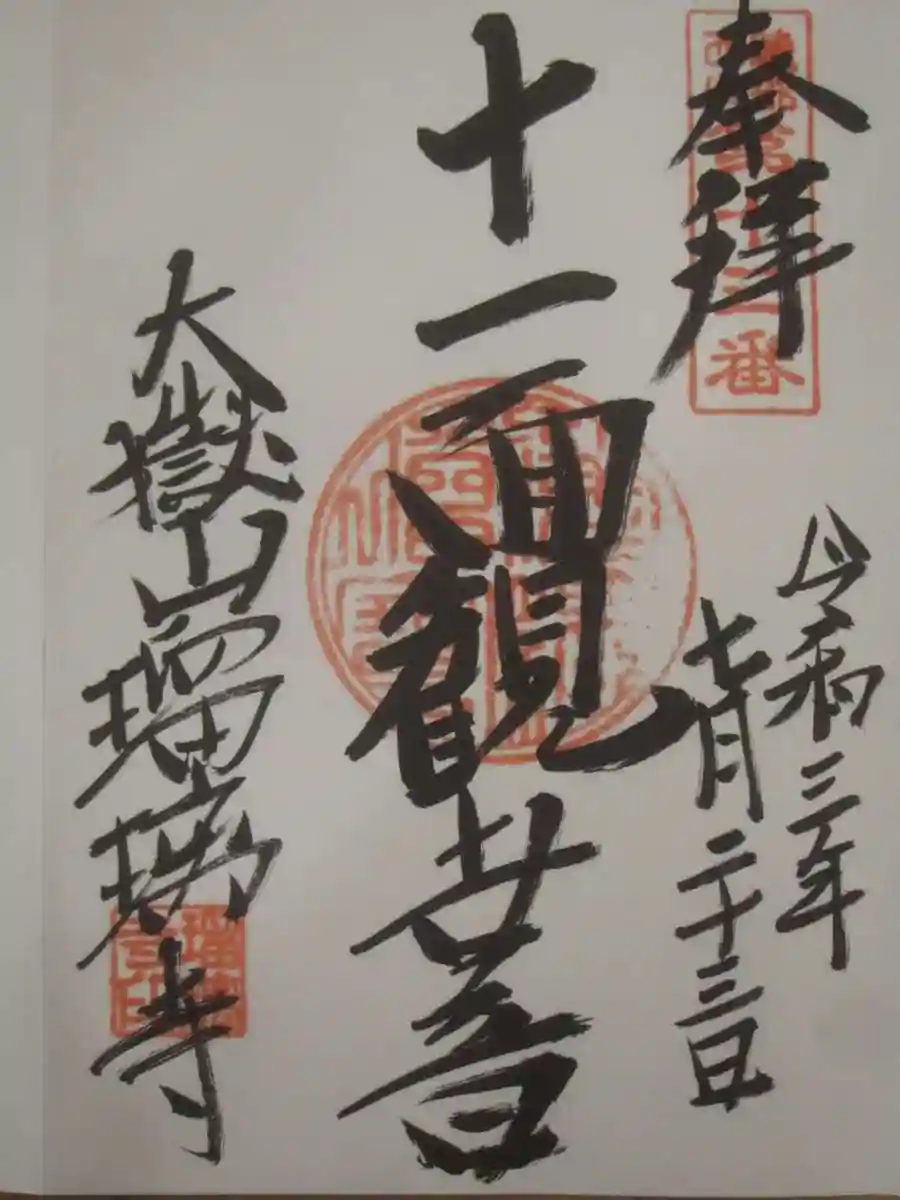 奉拝
令和三年
七月二十三日
十一面観世音
大嶽山瑠璃寺
十三番